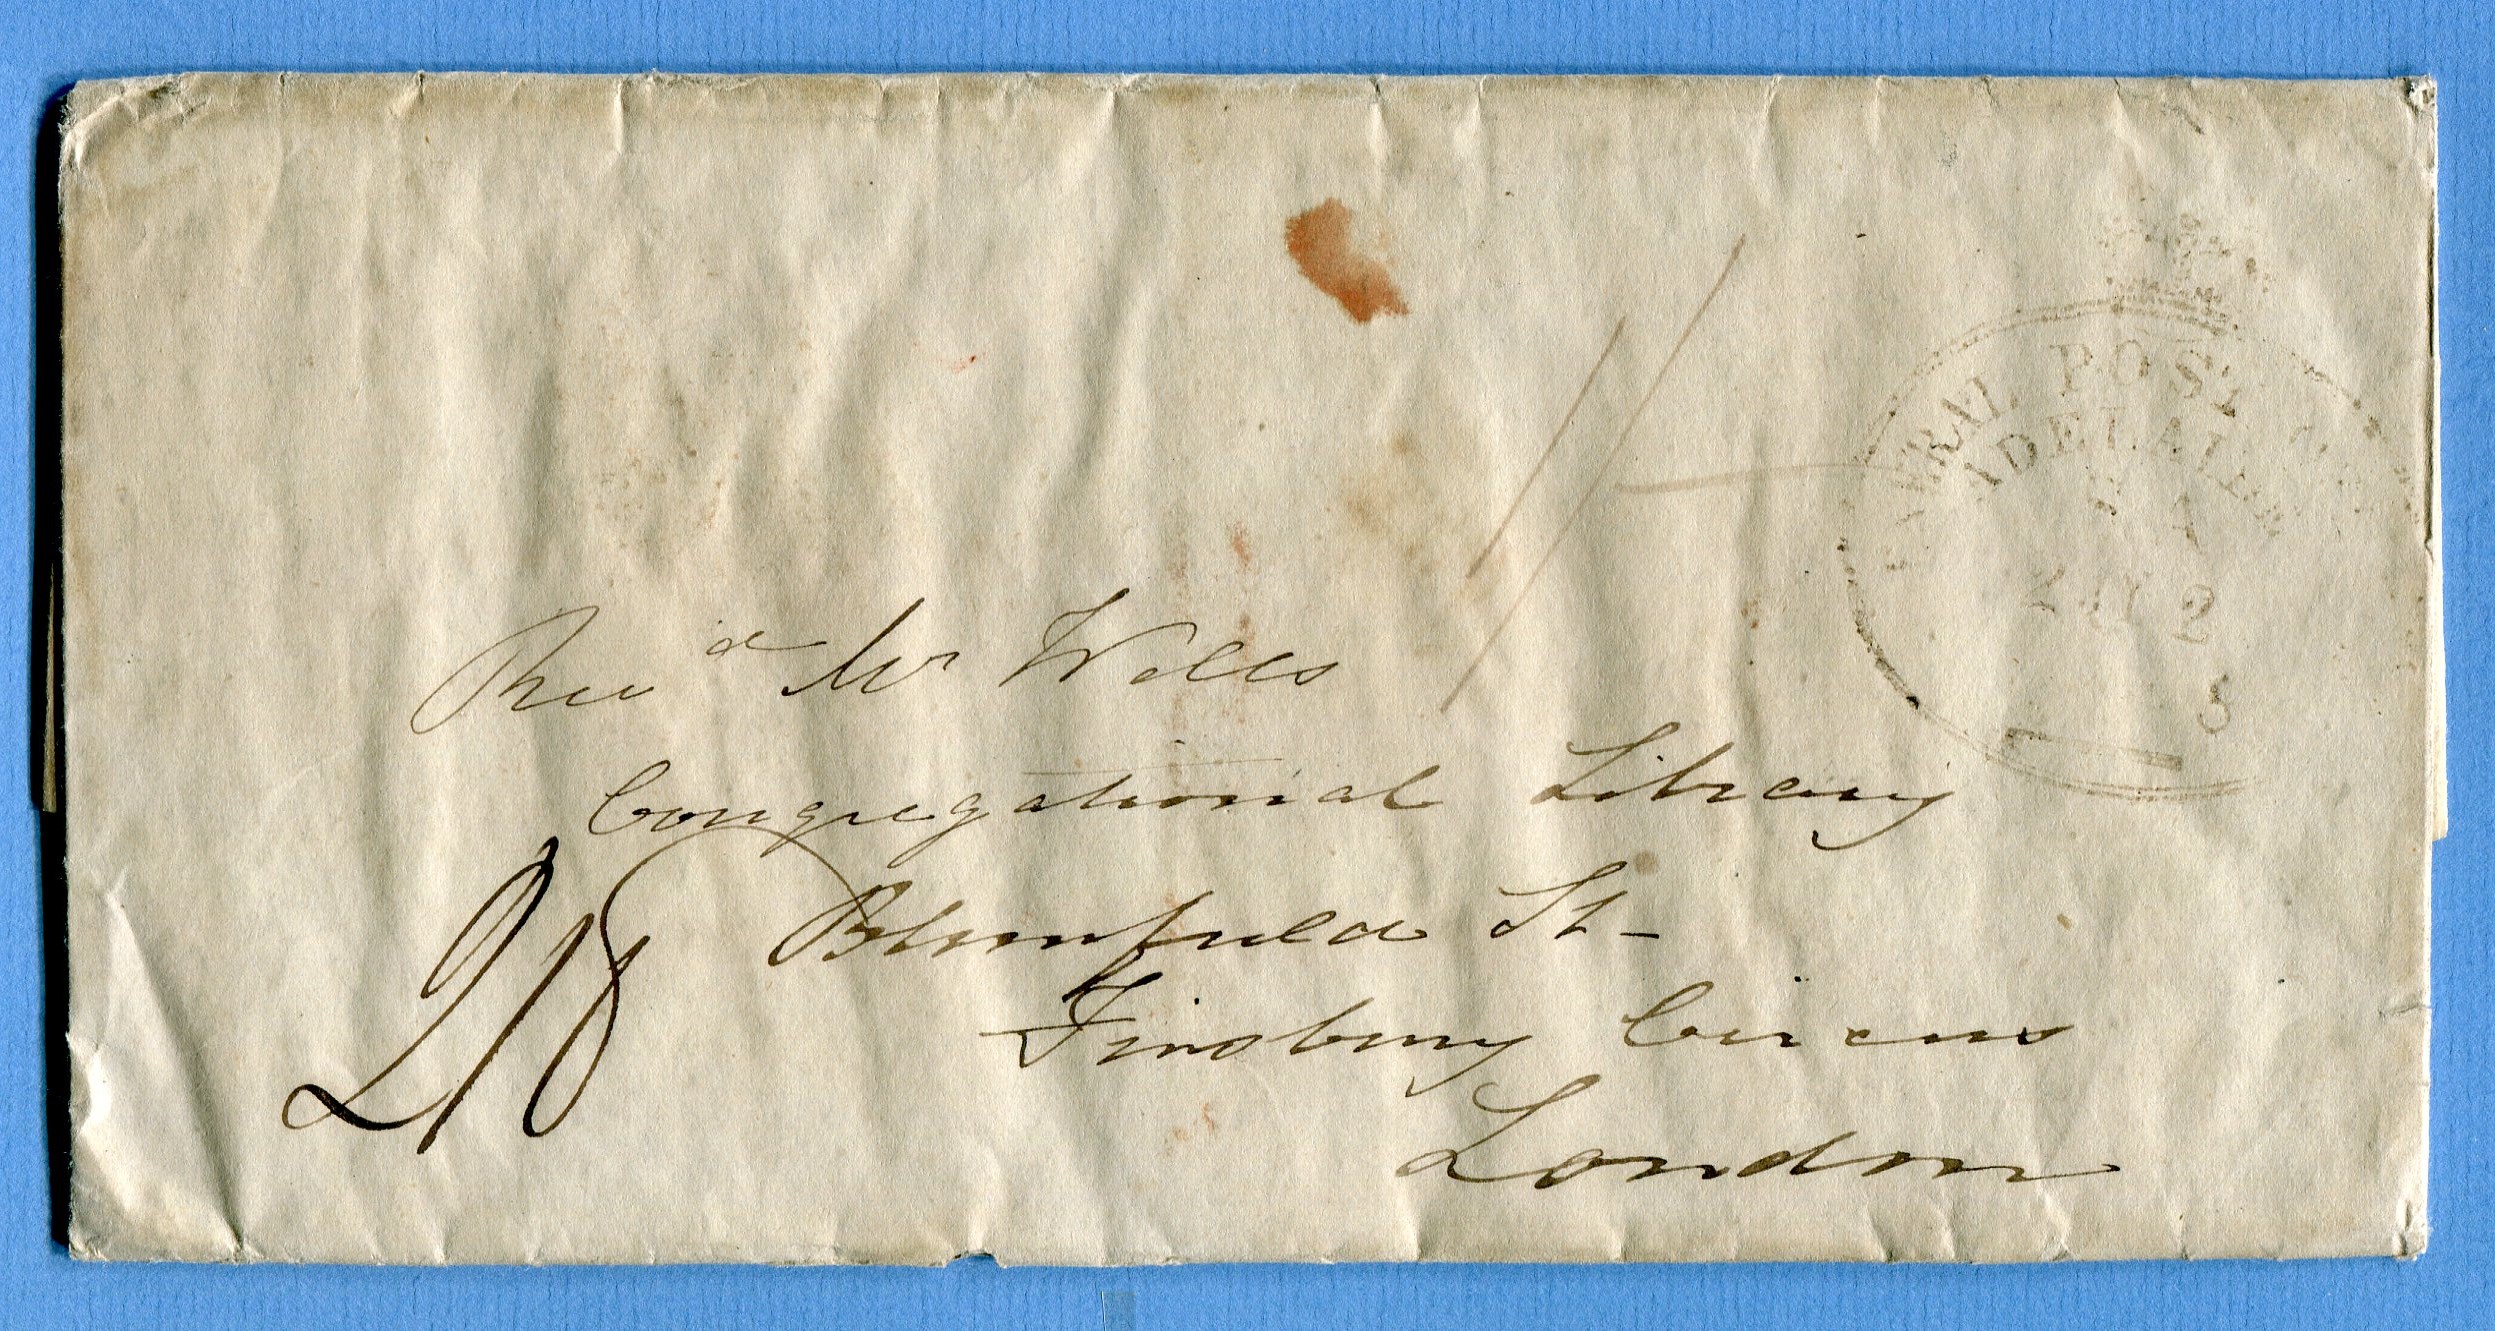 GENERAL POST
ADELAIDE
Revd Mr Wells
Congregational Library
Blomfield St-
Finsbury Circus
London